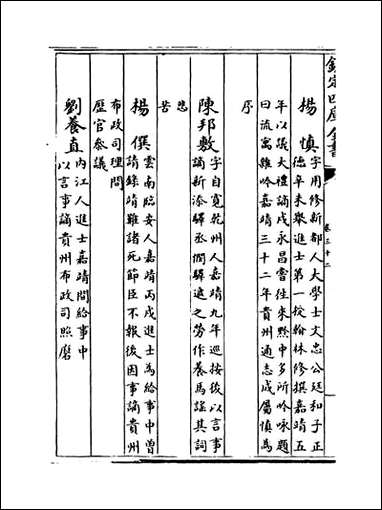 欽定四庫全書
卷三十二
楊慎字用修新都人大學士文忠公廷和子正
德辛未舉進士第一授翰林修撰嘉靖五
年以議大禮謫戍永昌嘗往來黔中多所吟咏題
曰流寓雜吟嘉靖三十二年貴州通志成屬慎為
序
陳邦敷字自寛乾州人嘉靖九年巡按後以言事
謫新添驛丞憫驛遞之勞作養馬謡其詞
悲苦
楊僎雲南臨安人嘉靖丙戌進士為給事中曾
請錄靖難諸死節臣不報後因事謫貴州
布政司理問
歴官參議
劉養直内江人進士嘉靖間給事中
以言事謫貴州布政司照磨